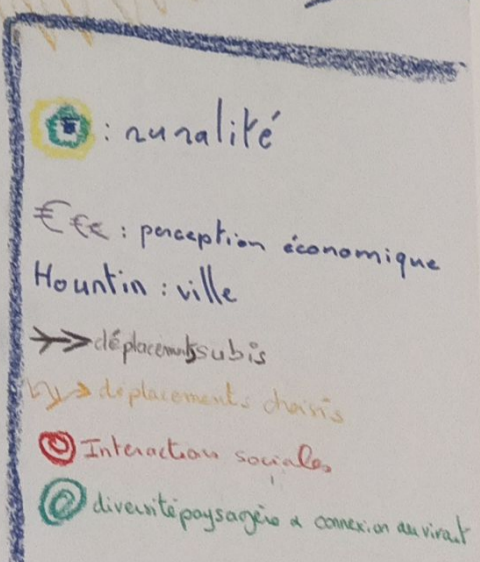 : ruralité
€€€ : perception économique
Hountin : ville
déplacements subis
déplacements choisis
Interaction sociales
diversité paysagère & connexion au vivant